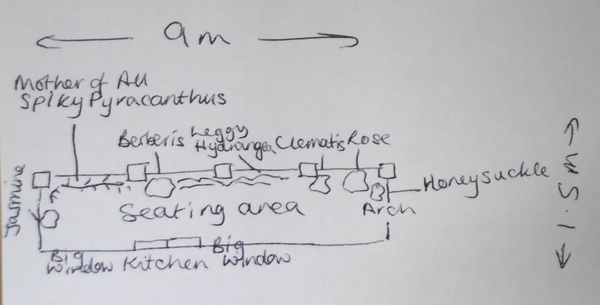 9m
Mother of All
Spiky Pyracanthus
Berberis
Leggy
Hydrangea
Clematis
Rose
Jasmine
Honeysuckle
Seating area
Arch
1.5m
Big
Window
Kitchen
Big
Window